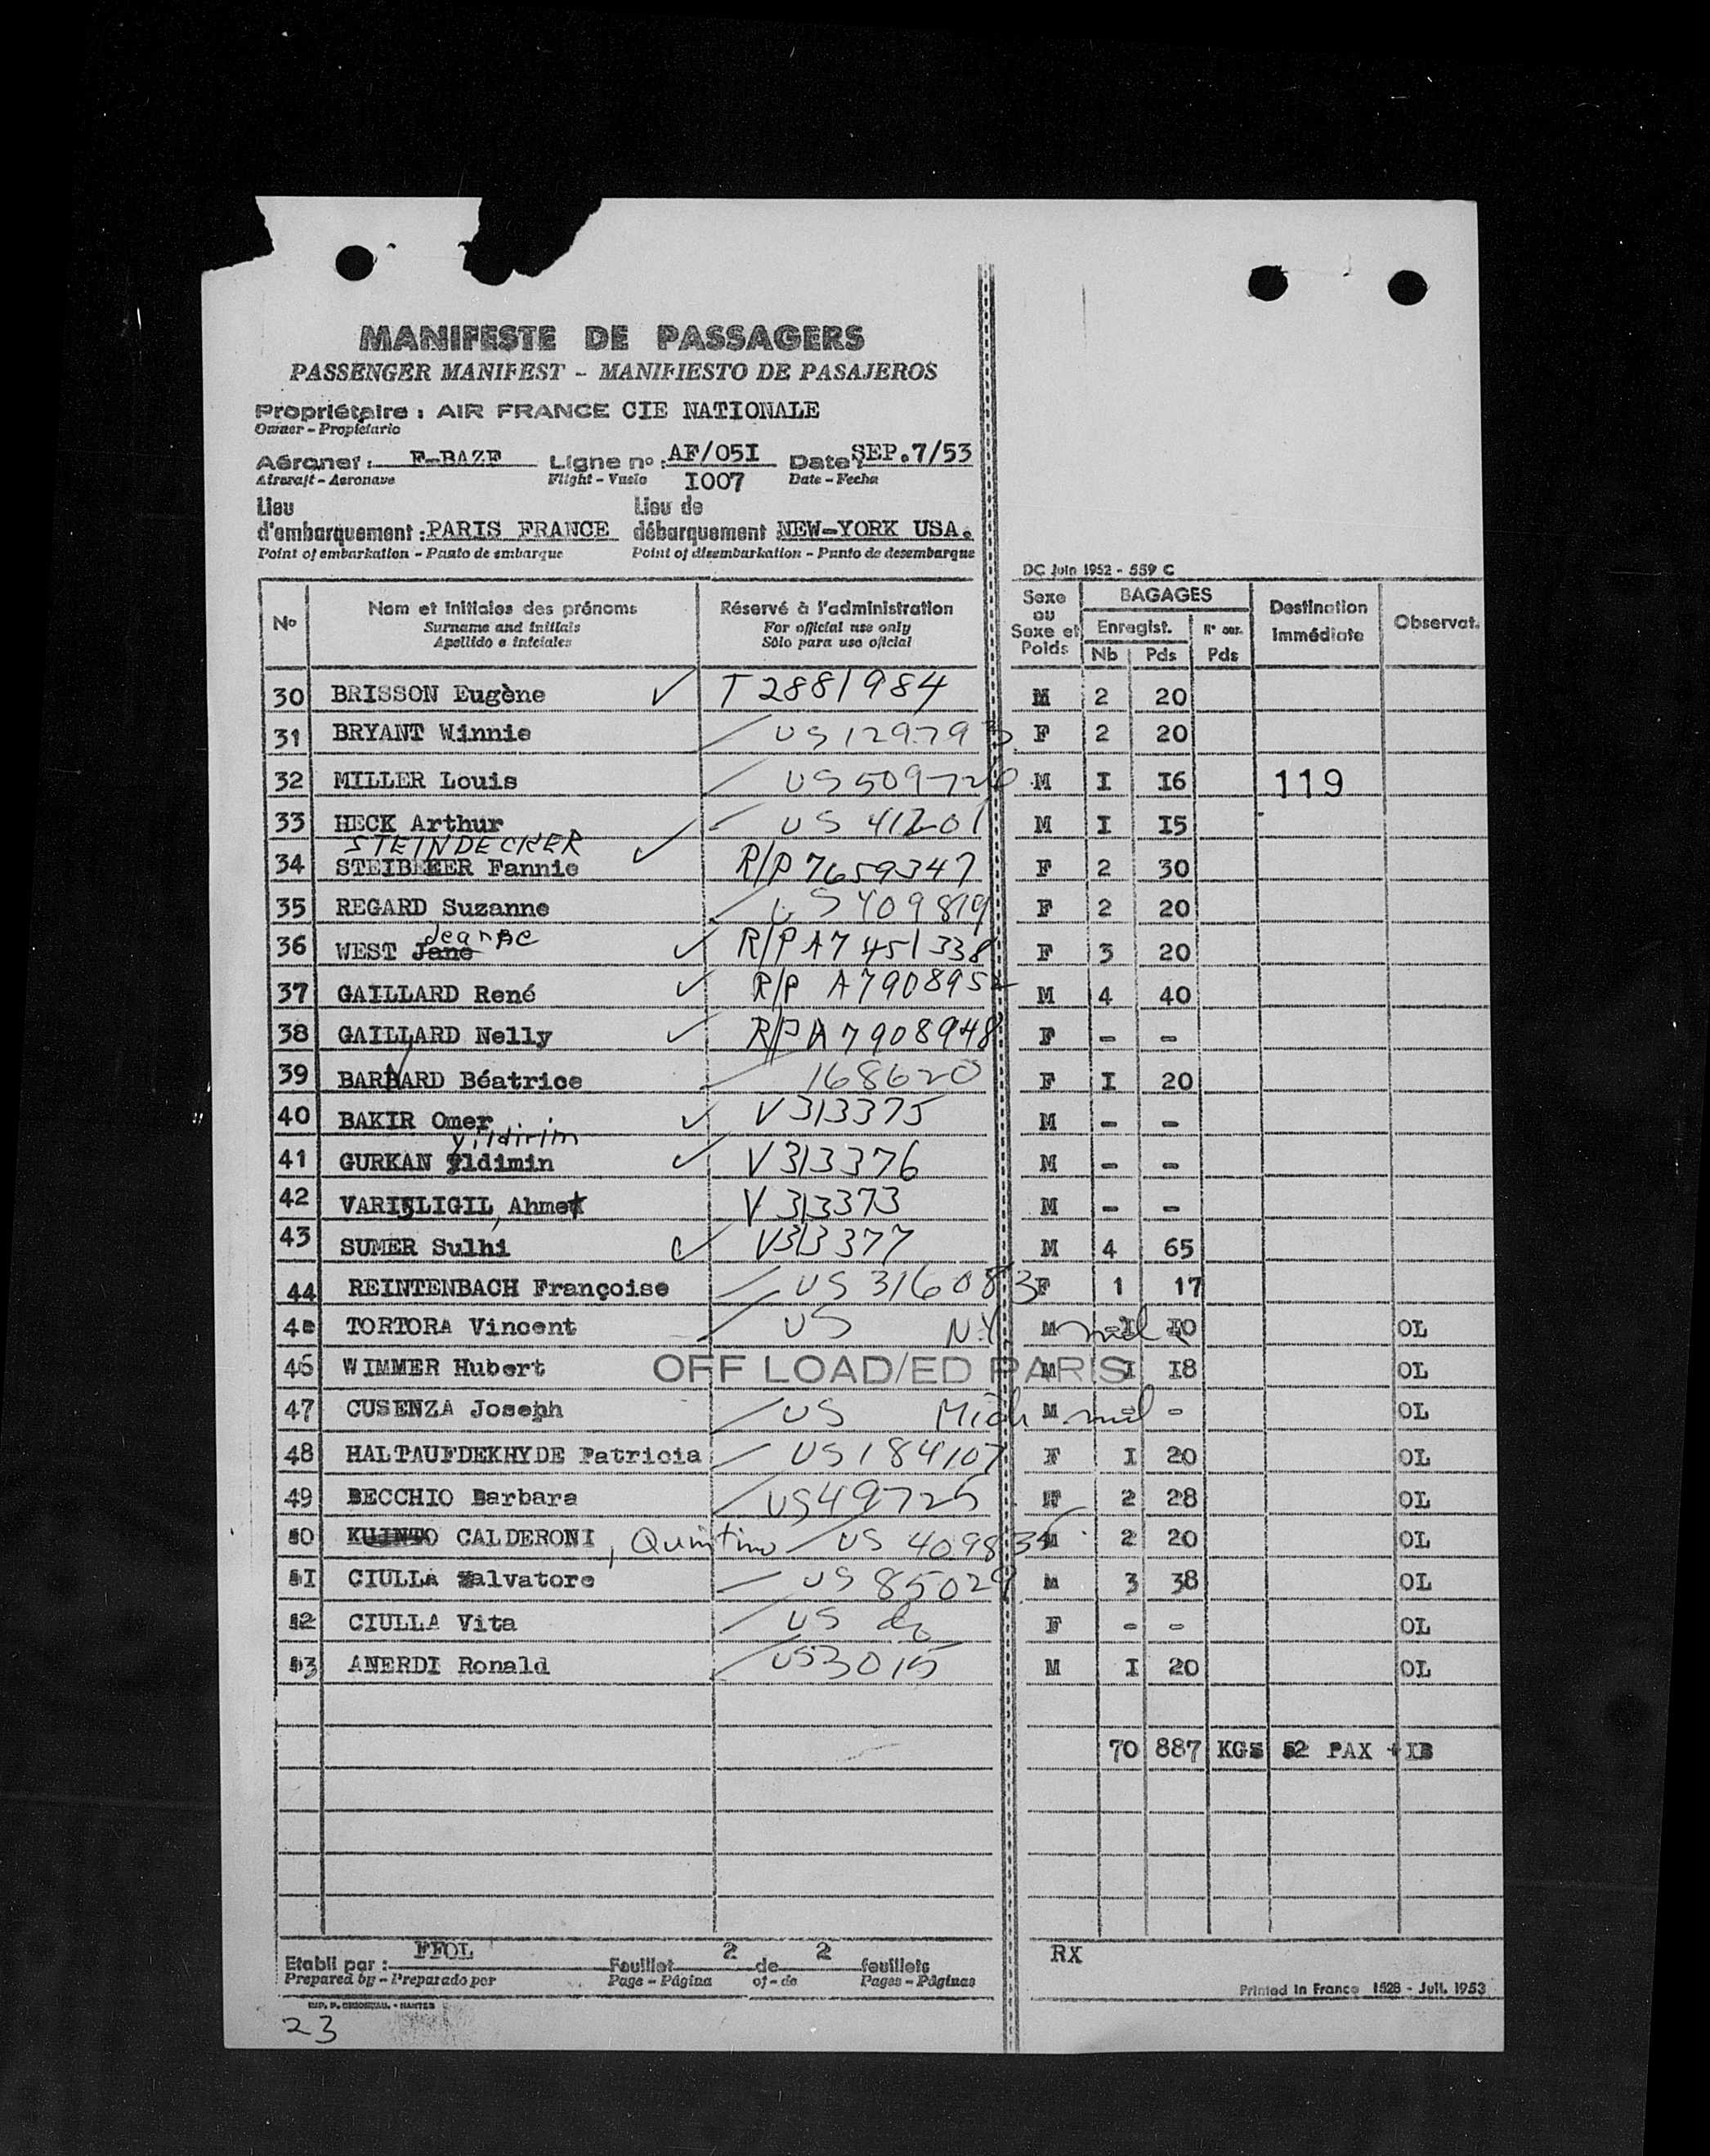 MANIFESTE DE PASSAGERS
PASSENGER MANIFEST - MANIFIESTO DE PASAJEROS
Propriétaire : AIR FRANCE CIE NATIONALE
Owner - Propietario
Aéronef : F-BAZF Ligne no : AF/05I Date : SEP.7/53
Aircraft - Aeronave Flight - Vuelo I007 Date - Fecha
Lieu d'embarquement : PARIS FRANCE Lieu de débarquement NEW-YORK USA.
Point of embarkation - Punto de embarque Point of disembarkation - Punto de desembarque
DC Juin 1952 - 559 C
No Nom et initiales des prénoms Réservé à l'administration Sexe ou Sexe et Poids BAGAGES Destination Immédiate Observat.
Surname and initials For official use only Enregist.
Apellido e iniciales Sólo para uso oficial Nb Pds Pds
30 BRISSON Eugène ✓ T 2881984 M 2 20
31 BRYANT Winnie US 129793 F 2 20
32 MILLER Louis US 509720 M I I6 119
33 HECK Arthur US 41201 M I I5
STEINDECKER
34 Fannie ✓ R/P 7659347 F 2 30
35 REGARD Suzanne US 409819 F 2 20
Jeanne
36 WEST Jane ✓ R/P A7451338 F 3 20
37 GAILLARD René ✓ R/P A7908952 M 4 40
38 GAILLARD Nelly ✓ R/P A7908948 F - -
39 BARNARD Béatrice 168620 F I 20
40 BAKIR Omer ✓ V313375 M - -
Yildirim
41 GURKAN Yldimin ✓ V313376 M - -
42 VARISLIGIL, Ahmet V313373 M - -
43 SUMER Sulhi ✓ V313377 M 4 65
44 REINTENBACH Françoise US 316083 F 1 17
TORTORA Vincent US N.Y. M mil I I0 OL
46 WIMMER Hubert OFF LOAD/ED PARIS M I I8 OL
47 CUSENZA Joseph US Mich M mil - - OL
48 HALTAUFDEKHYDE Patricia US 184107 F I 20 OL
49 BECCHIO Barbara US 49725 F 2 28 OL
50 KUINTO CALDERONI, Quintino US 409835 M 2 20 OL
5I CIULLA Salvatore US 85029 M 3 38 OL
52 CIULLA Vita US do F - - OL
53 ANERDI Ronald US 3015 M I 20 OL
70 887 KGS 52 PAX + IB
Etabli par : FFOL Feuillet 2 de 2 feuillets RX
Prepared by - Preparado por Page - Página of - de Pages - Páginas
Printed in France 1528 - Juil. 1953
23